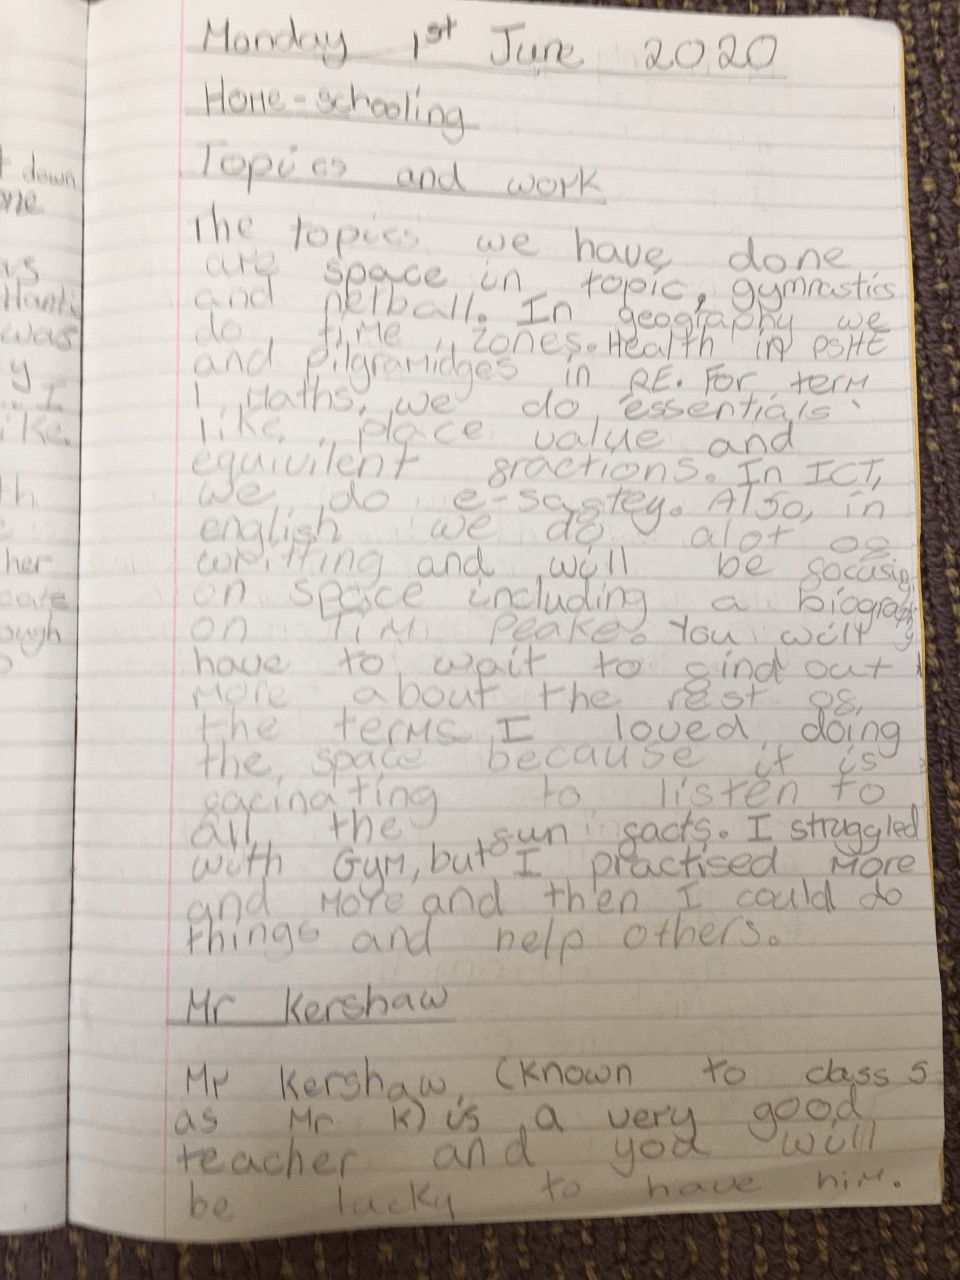 Monday 1st June 2020
Home-schooling
Topics and work
The topics we have done
are space in topic, gymnastics
and netball. In geography we
do time zones. Health in PSHE
and pilgramidges in RE. For term
1 Maths, we do essentials
like place value and
equivilent fractions. In ICT,
we do e-saftey. Also, in
english we do alot of
writting and will be focusing
on space including a biography
on Tim Peake. You will
have to wait to find out
more about the rest of
the terms. I loved doing
the space because it is
facinating to listen to
all the fun facts. I struggled
with Gym, but I practised more
and more and then I could do
things and help others.
Mr Kershaw
Mr Kershaw, (known to class 5
as Mr K) is a very good
teacher and you will
be lucky to have him.
down
was
her
ough